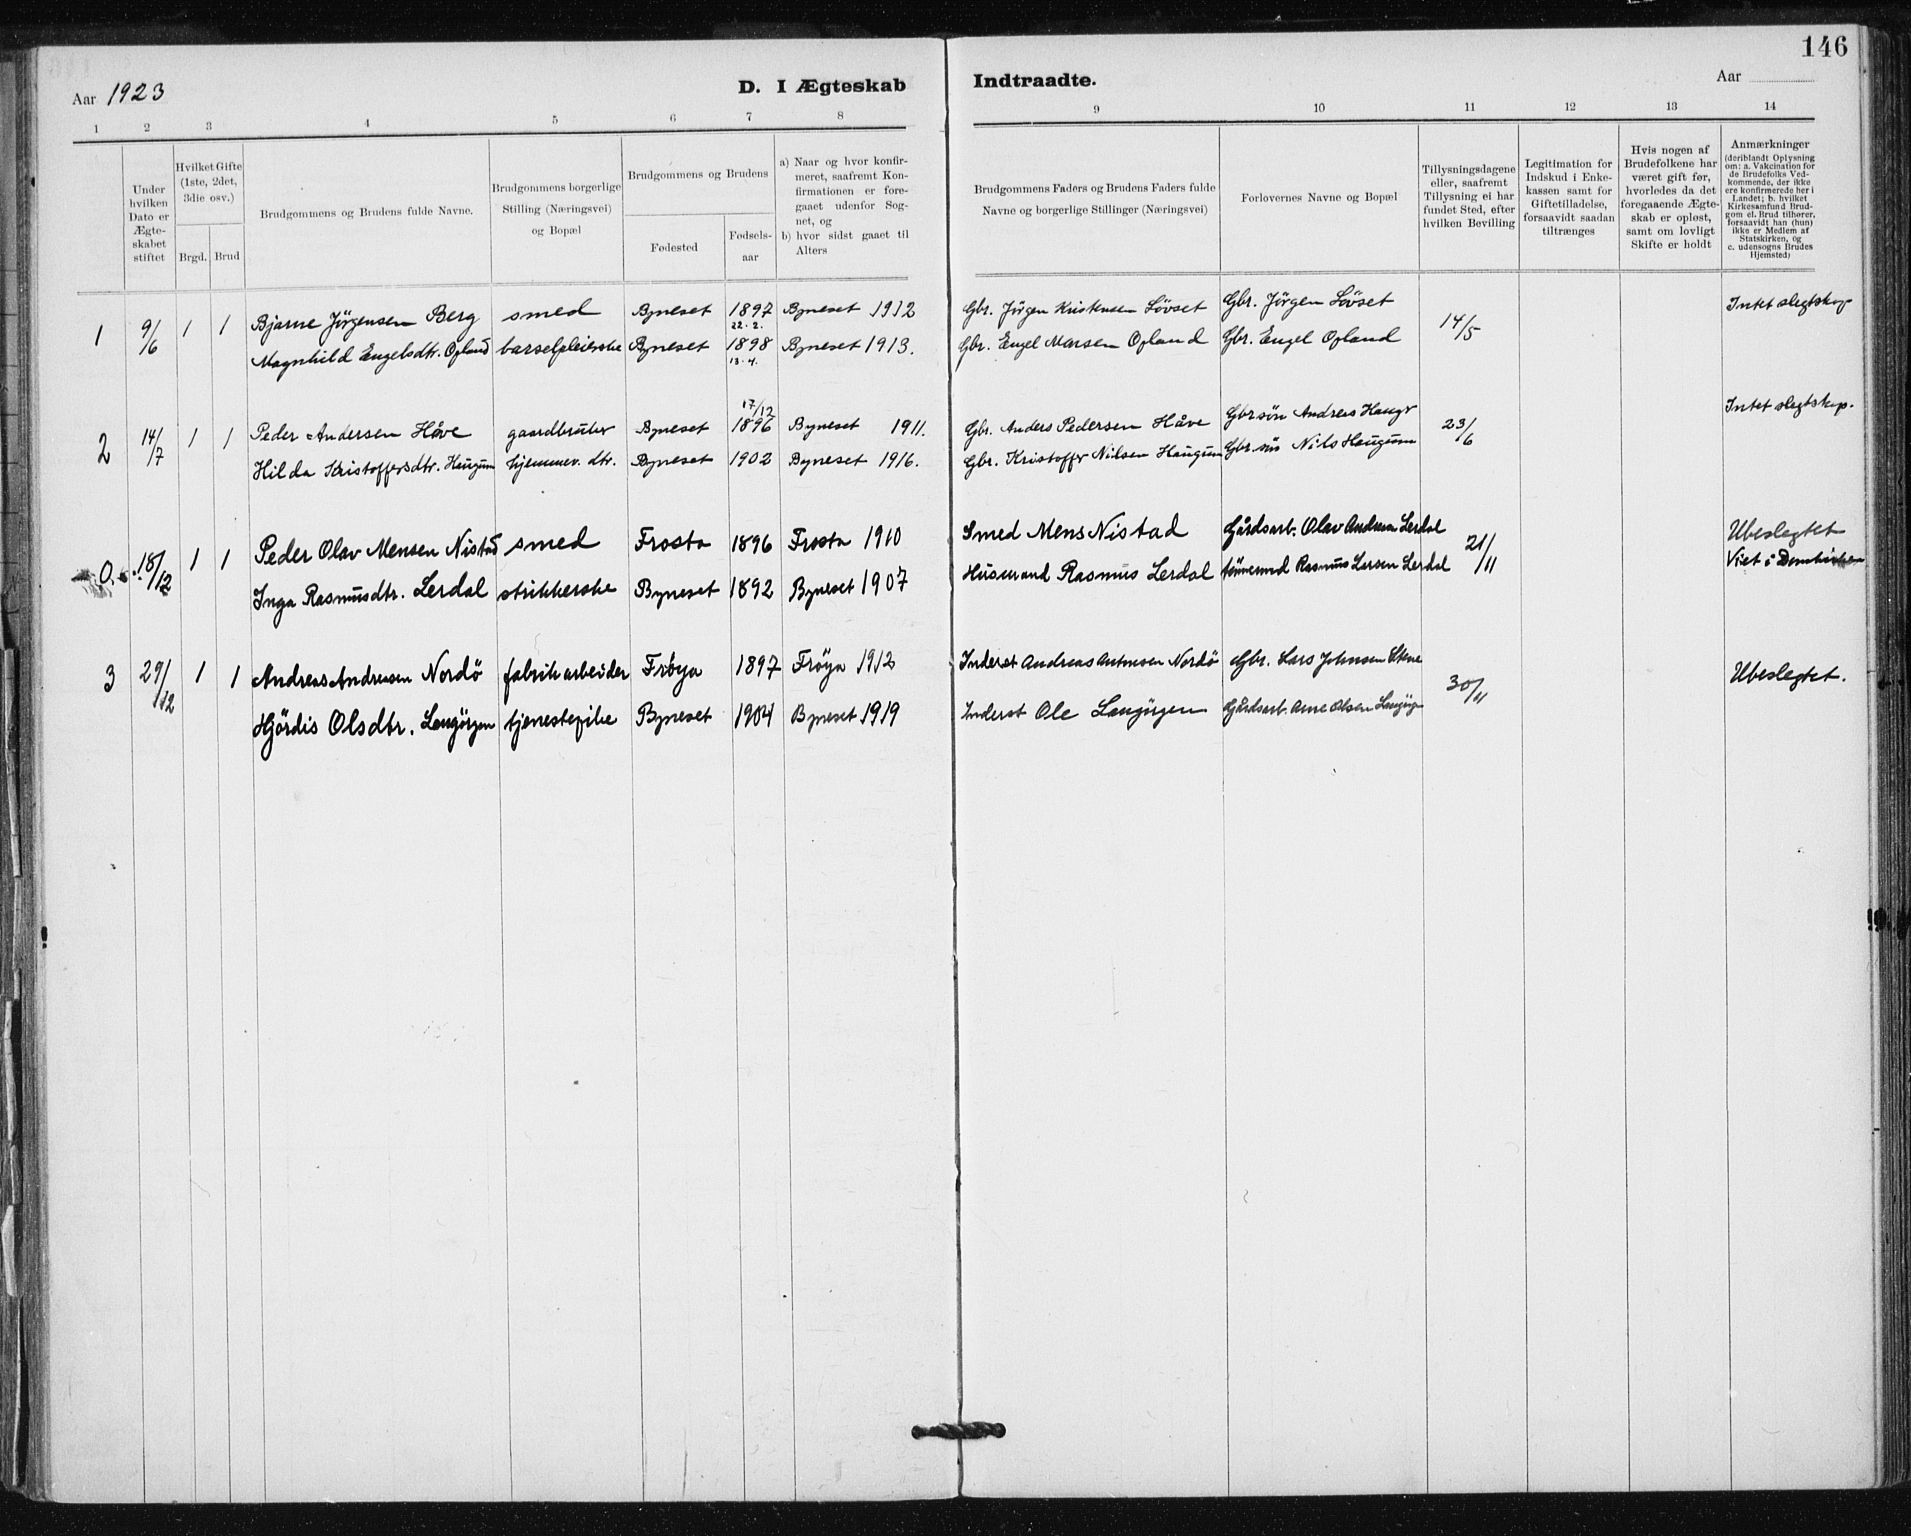 146
Aar 1923
D. I Ægteskab
Indtraadte.
Aar
1 2 3 4 5 6 7 8
9 10 11 12 13 14
Under hvilken Dato er Ægteskabet stiftet
Hvilket Gifte (1ste, 2det, 3die osv.)
Brgd. Brud
Brudgommens og Brudens fulde Navne.
Brudgommens borgerlige Stilling (Næringsvei) og Bopæl
Brudgommens og Brudens
Fødested
Fødsels-aar
a) Naar og hvor konfirmeret, saafremt Konfirmationen er foregaaet udenfor Sognet, og
b) hvor sidst gaaet til Alters
Brudgommens Faders og Brudens Faders fulde Navne og borgerlige Stillinger (Næringsvei)
Forlovernes Navne og Bopæl
Tillysningsdagene eller, saafremt Tillysning ei har fundet Sted, efter hvilken Bevilling
Legitimation for Indskud i Enkekassen samt for Giftetilladelse, forsaavidt saadan tiltrænges
Hvis nogen af Brudefolkene har været gift før, hvorledes da det foregaaende Ægteskab er opløst, samt om lovligt Skifte er holdt
Anmærkninger
(deriblandt Oplysning om: a. Vakcination for de Brudefolks Vedkommende, der ikke ere konfirmerede her i Landet; b. hvilket Kirkesamfund Brudgom el. Brud tilhører, forsaavidt han (hun) ikke er Medlem af Statskirken, og c. udensogns Brudes Hjemsted)
1 9/6 1 1 Bjarne Jörgensen Berg smed Byneset 1897 22.2. Byneset 1912 Gbr. Jörgen Kristensen Lövset Gbr. Jörgen Lövset 14/5 Intet slegtskap
Magnhild Engelsdtr. Opland barselpleierske Byneset 1898 13.4. Byneset 1913. Gbr. Engel Opland Gbr. Engel Opland
2 14/7 1 1 Peder Andersen Håve gaardbruker Byneset 17/12 1896 Byneset 1911. Gbr. Anders Pedersen Håve Gbrsön Andreas 23/6 Intet slegtskap.
Hilda Kristoffersdtr. Haugum hjemmev. dtr. Byneset 1902 Byneset 1916. Gbr. Kristoffer Nilsen Haugum Gbr.sön Nils Haugum
0 18/12 1 1 Peder Olav Mensen Nistad smed Frosta 1896 Frosta 1910 Smed Mens Nistad Gårdsarb. Olav Lerdal 21/11 Ubeslegtet
Viet i Domkirken
Inga Rasmusdtr. Lerdal strikkerske Byneset 1892 Byneset 1907 Husmand Rasmus Lerdal tömmermd Rasmus Larsen Lerdal
3 29/12 1 1 Andreas Andreasen Nordö fabrikarbeider Fröya 1897 Fröya 1912 Inderst Andreas Antonsen Nordö Gbr. Lars Johnsen 30/11 Ubeslegtet.
Hjördis Olsdtr. Langörgen tjenestepike Byneset 1904 Byneset 1919 Inderst Ole Langörgen Gårdsarb. Arne Olsen Langörgen